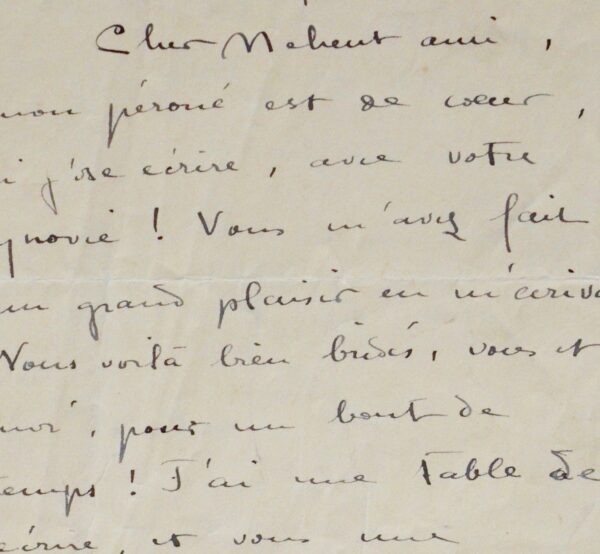 Cher Nabent ami,
mon péroné est de cœur,
j'ose écrire, avec votre
synovie ! Vous m'avez fait
un grand plaisir en m'écriva
Vous voilà bien bridés, vous et
pour un bout de
temps ! J'ai une table de
écrire, et vous une